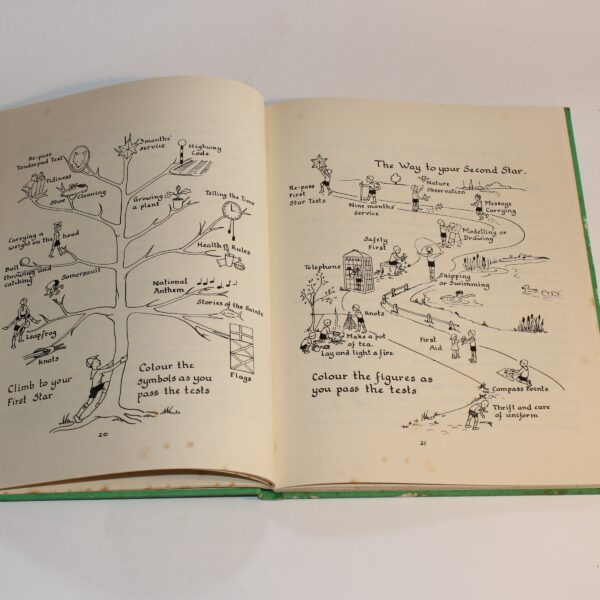 3 months'
service
Re-pass
Tenderpad Test
Highway
Code
Tidiness
Shoe Cleaning
Growing
a plant
Telling the Time
Carrying a
weight on the head
Health Rules
Ball
throwing and
catching
Somersault
National
Anthem
Stories of the Saints
Leapfrog
Knots
Flags
Climb to your
First Star
Colour the
symbols as you
pass the tests
20
The Way to your Second Star.
Re-pass
First
Star Tests
Nine months'
service
Nature
Observation
Message
Carrying
Modelling or
Drawing
Safety
First
Telephone
Skipping
or Swimming
Knots
Make a pot
of tea.
Lay and light a fire
First
Aid
Colour the figures as
you pass the tests
Compass Points
Thrift and care
of uniform
21